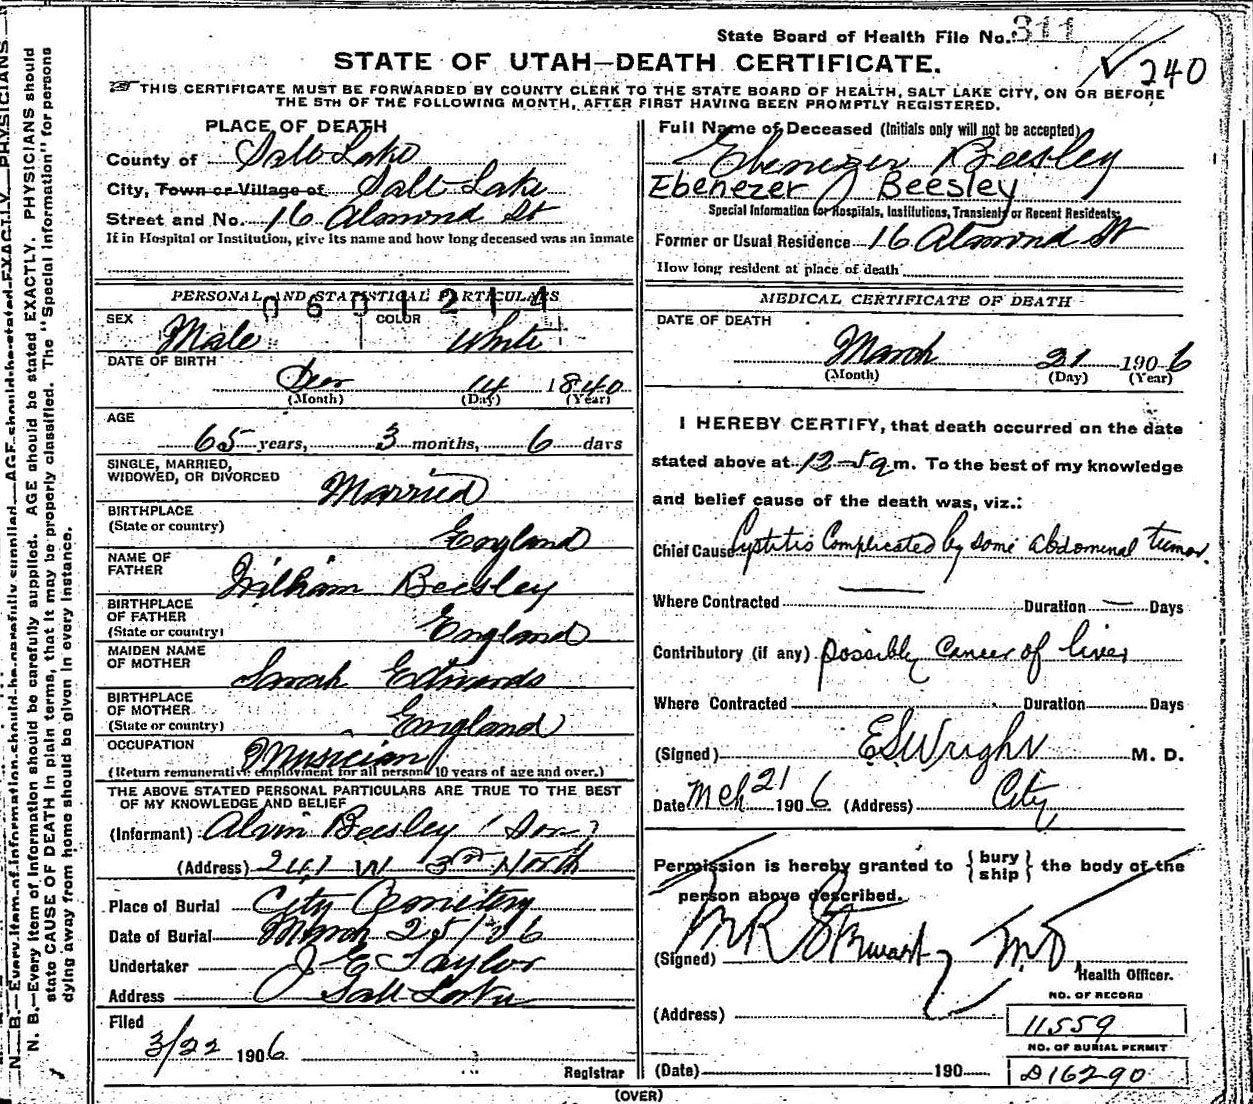 State Board of Health File No. 311
240
STATE OF UTAH—DEATH CERTIFICATE.
THIS CERTIFICATE MUST BE FORWARDED BY COUNTY CLERK TO THE STATE BOARD OF HEALTH, SALT LAKE CITY, ON OR BEFORE
THE 5TH OF THE FOLLOWING MONTH, AFTER FIRST HAVING BEEN PROMPTLY REGISTERED.
PLACE OF DEATH
County of Salt Lake
City, Town or Village of Salt Lake
Street and No. 16 Almond St
If in Hospital or Institution, give its name and how long deceased was an inmate
PERSONAL AND STATISTICAL PARTICULARS
0601214
SEX Male COLOR White
DATE OF BIRTH
Dec 14 1840
(Month) (Day) (Year)
AGE
65 years, 3 months, 6 days
SINGLE, MARRIED,
WIDOWED, OR DIVORCED Married
BIRTHPLACE
(State or country) England
NAME OF
FATHER William Beesley
BIRTHPLACE
OF FATHER
(State or country) England
MAIDEN NAME
OF MOTHER Sarah Edwards
BIRTHPLACE
OF MOTHER
(State or country) England
OCCUPATION Musician
(Return remunerative employment for all persons 10 years of age and over.)
THE ABOVE STATED PERSONAL PARTICULARS ARE TRUE TO THE BEST
OF MY KNOWLEDGE AND BELIEF
(Informant) Alvin Beesley (Son)
(Address) 241 W 3rd North
Place of Burial City Cemetery
Date of Burial March 25/06
Undertaker J E Taylor
Address Salt Lake
Filed
3/22 1906
Registrar
Full Name of Deceased (Initials only will not be accepted)
Ebenezer Beesley
Ebenezer J Beesley
Special Information for Hospitals, Institutions, Transients or Recent Residents:
Former or Usual Residence 16 Almond St
How long resident at place of death
MEDICAL CERTIFICATE OF DEATH
DATE OF DEATH
March 21 1906
(Month) (Day) (Year)
I HEREBY CERTIFY, that death occurred on the date
stated above at 12-5 a m. To the best of my knowledge
and belief cause of the death was, viz.:
Chief Cause Cystitis Complicated by some abdominal tumor.
Where Contracted — Duration — Days
Contributory (if any) possibly Cancer of liver
Where Contracted Duration Days
(Signed) E S Wright M. D.
Date Mch 21 1906 (Address) City
Permission is hereby granted to {bury ship} the body of the
person above described.
(Signed) M R Stewart M.D.
Health Officer.
(Address)
NO. OF RECORD
11559
NO. OF BURIAL PERMIT
D16290
(Date) 190
(OVER)
N. B.—Every item of information should be carefully supplied. AGE should be stated EXACTLY. PHYSICIANS should
state CAUSE OF DEATH in plain terms, that it may be properly classified. The "Special Information" for persons
dying away from home should be given in every instance.